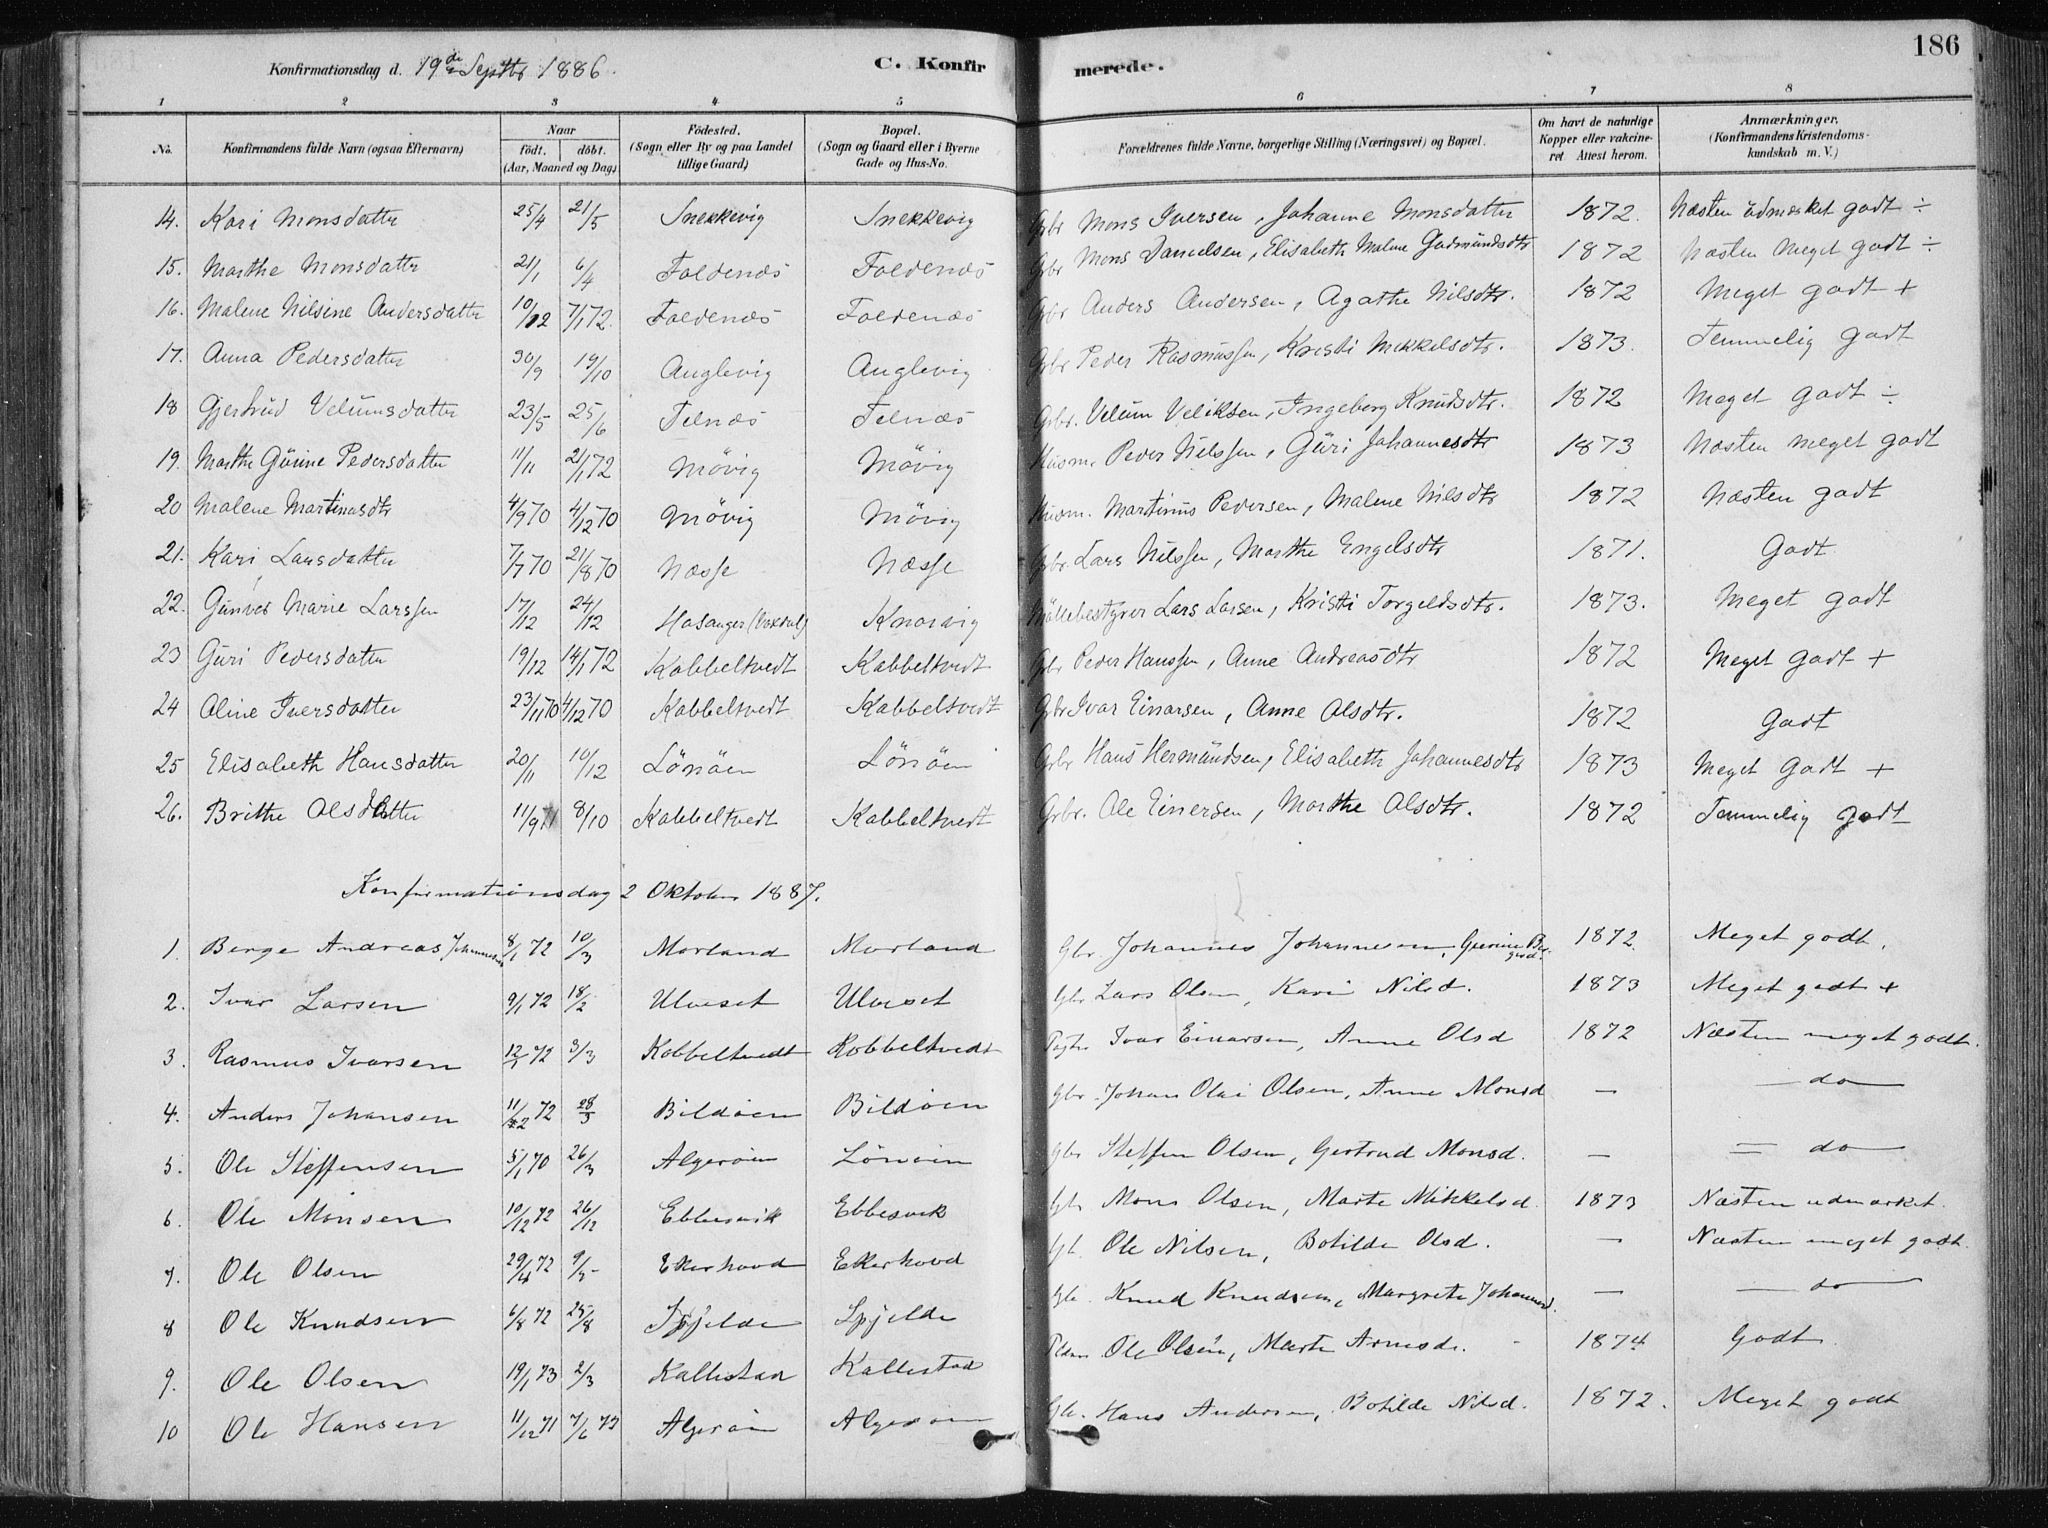 186
Konfirmationsdag d. 19de Septbr 1886. C. Konfirmerede.
1 2 3 4 5 6 7 8
No. Konfirmandens fulde Navn (ogsaa Efternavn) Naar født. døbt. (Aar, Maaned og Dag) Fødested. (Sogn eller By og paa Landet tillige Gaard) Bopæl. (Sogn og Gaard eller i Byerne Gade og Hus-No. Forældrenes fulde Navne, borgerlige Stilling (Næringsvei) og Bopæl. Om havt de naturlige Kopper eller vakcineret. Attest herom. Anmærkninger. (Konfirmandens Kristendomskundskab m. V.)
14. Kari Monsdatter 25/4 21/5 Snekkevig Snekkevig Gbr Mons Iversen, Johanne Monsdatter 1872. Næsten üdmærket godt ÷
15. Marthe Monsdatter 21/1 6/4 Foldenæs Foldenæs Gbr Mons Danielsen, Elisabeth Malene Gudmündsdtr 1872 Næsten meget godt ÷
16. Malene Nilsine Andersdatter 10/12 7/1 72. Foldenæs Foldenæs Gbr Anders Andersen, Agathe Nilsdtr. 1872 Meget godt +
17. Anna Pedersdatter 30/9 19/10 Anglevig Anglevig Gbr Peder Rasmussen, Kristi Mikkelsdtr. 1873. Temmelig godt
18 Gjertrud Velumsdatter 23/5 25/6 Telnæs Telnæs Grbr. Velüm Veliksen, Ingeborg Knüdsdtr. 1872 Meget godt ÷
19. Marthe Gürine Pedersdatter 11/11 21/1 72 Møvig Møvig Husm. Peder Nilssen, Güri Johannesdtr 1873 Næsten meget godt
20 Malene Martinusdtr 4/9 70 4/12 70 Møvig Møvig Husm. Martinus Pedersen, Malene Nilsdtr 1872 Næsten godt
21. Kari Larsdatter 7/7 70 21/8 70 Næsse Næsse Grbr. Lars Nilssen, Marthe Engelsdtr 1871. Godt
22. Gunver Marie Larssen 17/12 24/12 Hosanger Knarvig Møllebestyrer Lars Larsen, Kristi Torgeldsdtr. 1873. Meget godt
23 Guri Pedersdatter 19/12 14/1 72 Kabbeltvedt Kabbeltvedt Gbr Peder Hanssen, Anne Andreasdtr 1872 Meget godt +
24 Oline Iversdatter 23/11 70 4/12 70 Kabbeltvedt Kabbeltvedt Grbr Ivar Einarsen, Anne Olsdtr. 1872 Godt
25 Elisabeth Hansdatter 20/11 10/12 Lønøen Lønøen Grbr Hans Hermündsen, Elisabeth Johannesdtr 1873 Meget godt +
26. Brithe Olsdatter 11/9 71 8/10 Kabbeltvedt Kabbeltvedt Grbr. Ole Einersen, Marthe Olsdtr. 1872 Temmelig godt
Konfirmationsdag 2 Oktober 1887.
1. Berge Andreas Johannesen 8/1 72 10/3 Morland Morland Gbr. Johannes Johannesen, Gurine 1872. Meget godt.
2. Ivar Larsen 9/1 72 18/2 Ulveset Ulveset Gbr Lars Olsen, Kari Nilsd. 1873 Meget godt +
3. Rasmus Ivarsen 72 3/3 Kobbeltvedt Kobbeltvedt Ivar Einarsen, Anne Olsd 1872 Næsten meget godt.
4. Anders Johansen 11/2 72 28/3 Bildøen Bildøen Gbr. Johan Olai Olsen, Anne Monsd — — do —
5. Ole Steffensen 5/1 70 26/3 Algerøen Lønøen Gbr Steffen Olsen, Gertrud Monsd. — — do —
6. Ole Monsen 10/12 72 26/12 Ebbesvik Ebbesvik Gbr Mons Olsen, Marte Mikkelsd. 1873 Næsten udmærket.
7. Ole Olsen 29/4 72 9/5 Ekerhovd Ekerhovd Gb. Ole Nilsen, Botilde Olsd. — Næsten meget godt.
8 Ole Knudsen 6/8 72 25/8 Spjelde Spjelde Gbr. Knud Knudsen, Margrete Johannesd. — — do —
9. Ole Olsen 19/1 73 2/3 Kallestad Kallestad Ole Olsen, Marte Arnesd. 1874 Godt
10 Ole Hansen 11/12 71 7/6 73 Algerøen Algerøen Gb. Hans Andersen, Botilde Nilsd. 1872. Meget godt